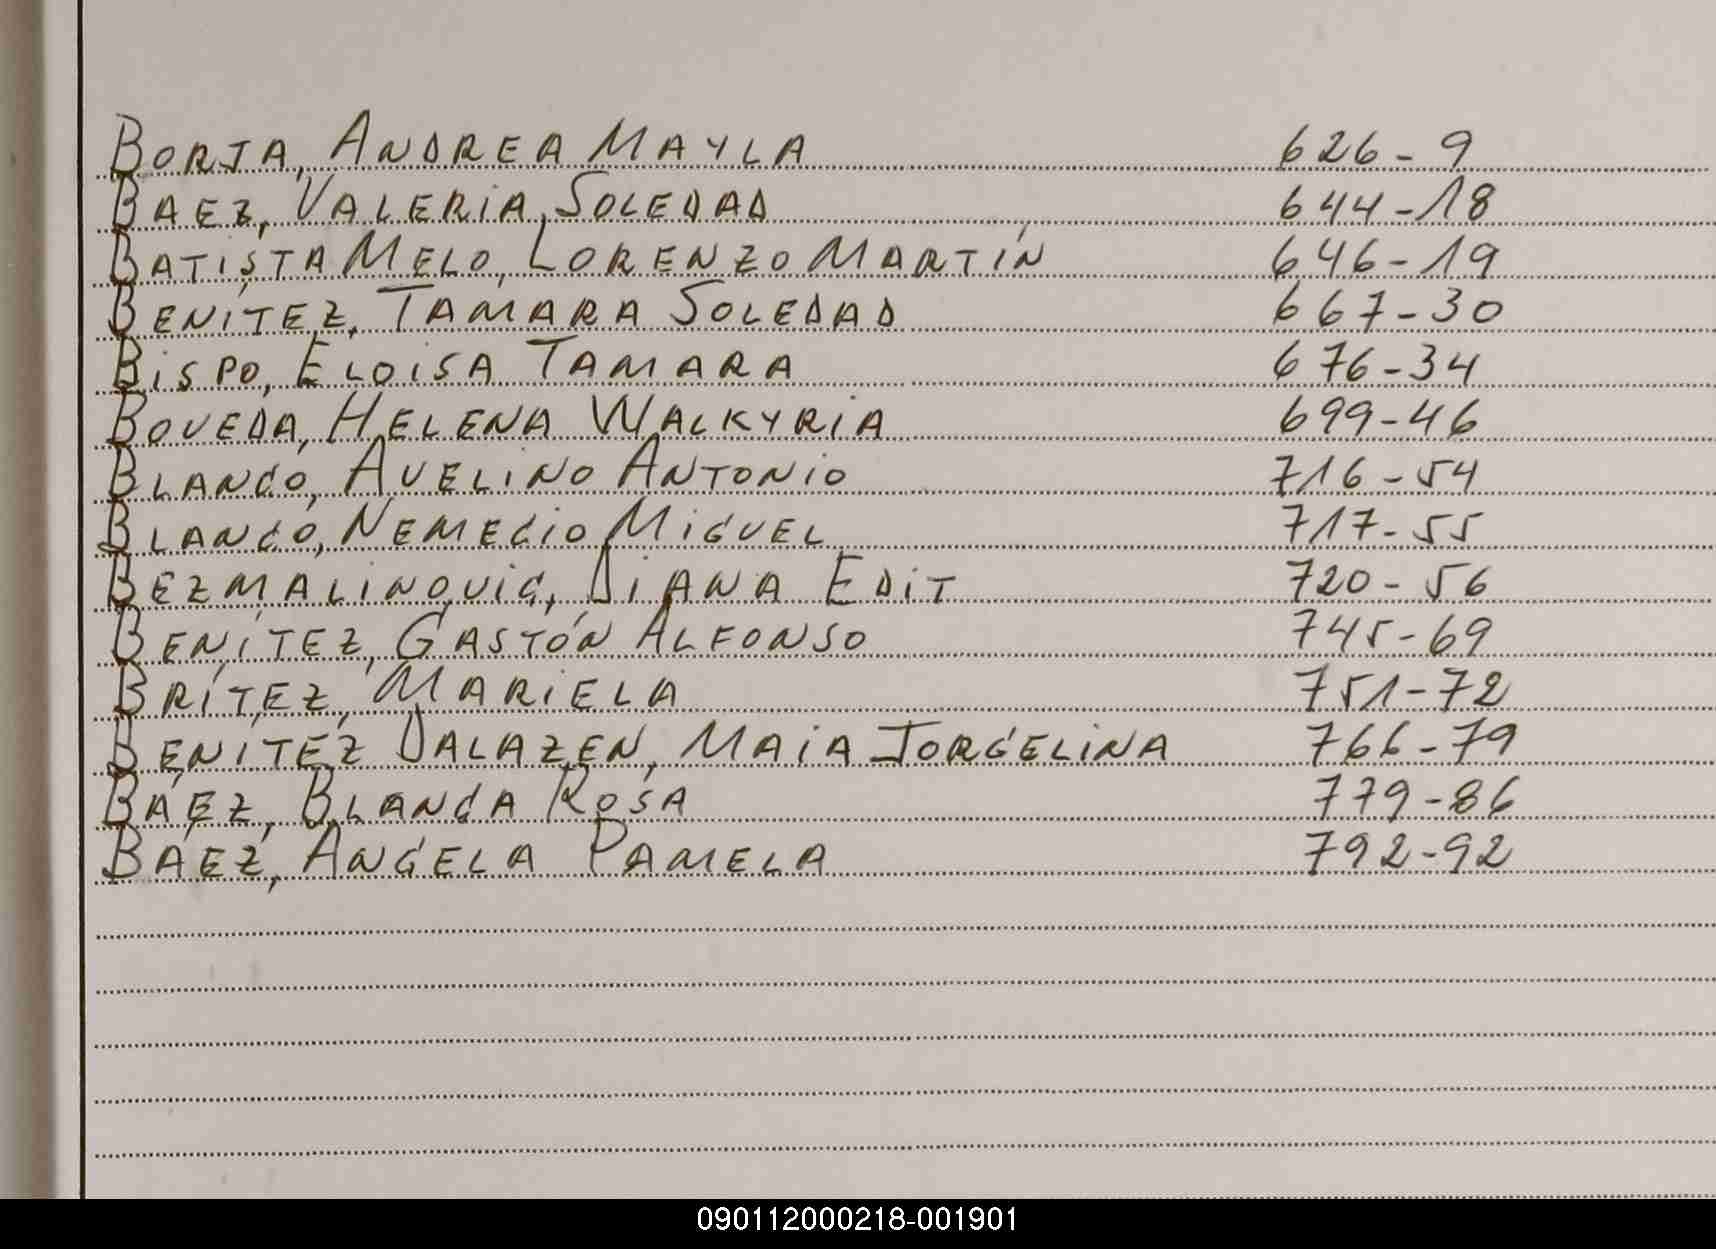 BORJA, ANDREA MAYLA 626-9
BAEZ, VALERIA SOLEDAD 644-18
BATISTA MELO, LORENZO MARTÍN 646-19
BENÍTEZ, TAMARA SOLEDAD 667-30
BISPO, ELOISA TAMARA 676-34
BOVEDA, HELENA WALKYRIA 699-46
BLANCO, AVELINO ANTONIO 716-54
BLANCO, NEMECIO MIGUEL 717-55
BEZMALINOVIC, DIANA EDIT 720-56
BENÍTEZ, GASTÓN ALFONSO 745-69
BRÍTEZ, MARIELA 751-72
BENÍTEZ DALAZEN, MAIA JORGELINA 766-79
BÁEZ, BLANCA ROSA 779-86
BÁEZ, ÁNGELA PAMELA 792-92
090112000218-001901